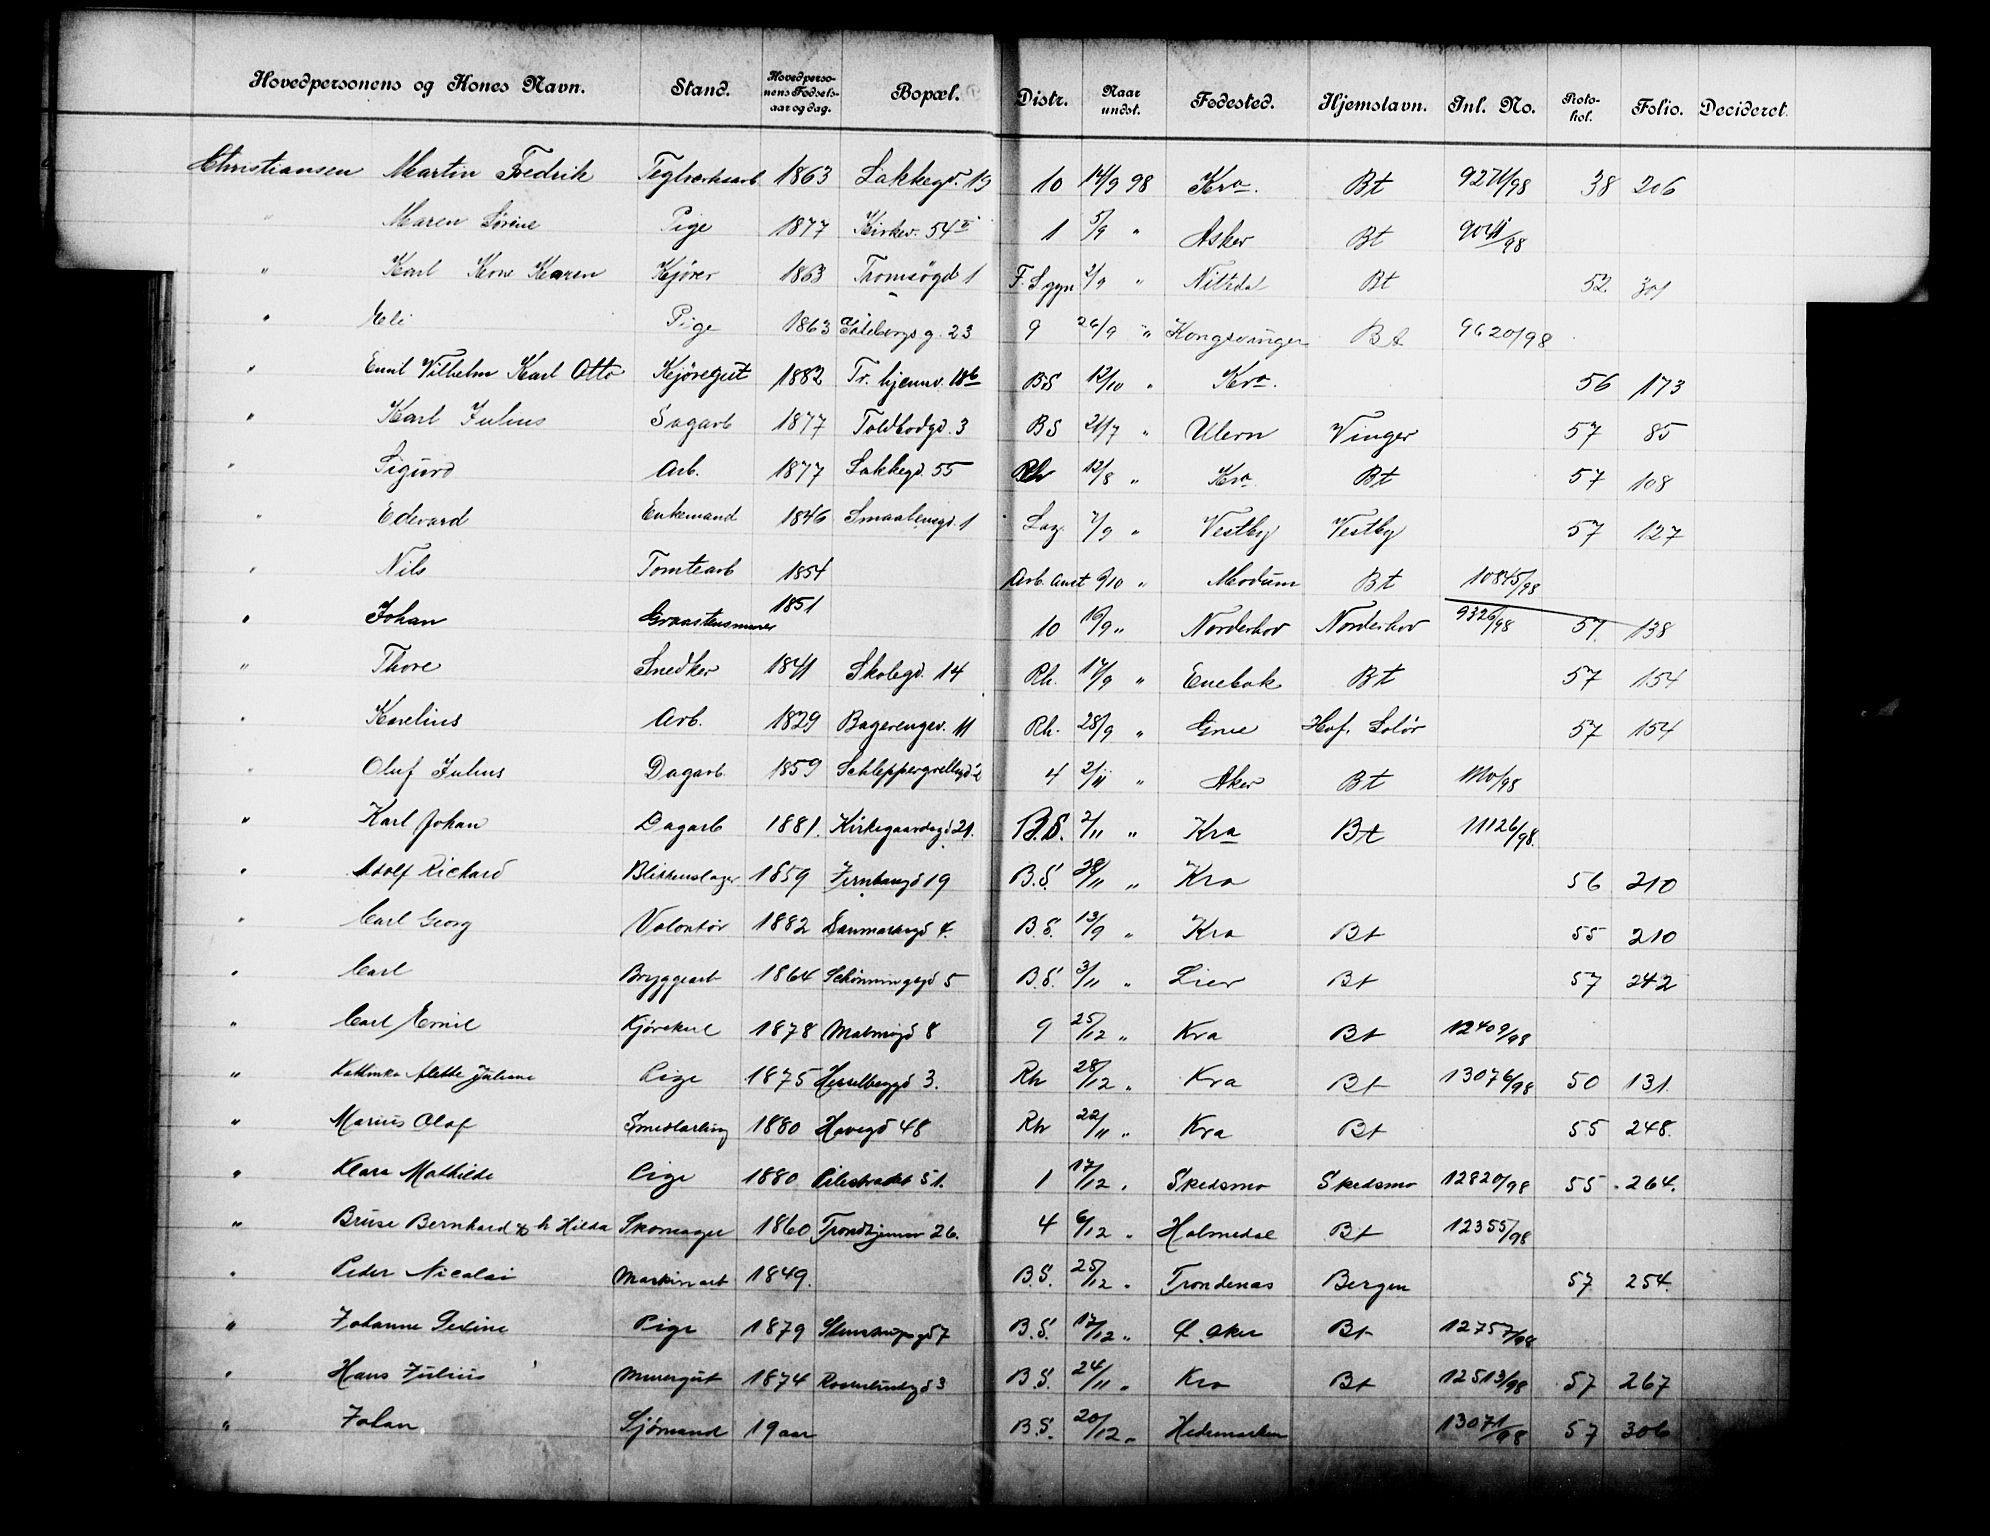 Hovedpersonens og Kones Navn. Stand. Hovedpersonens Fødselsaar og dag. Bopæl. Distr. Naar undst. Fødested. Hjemstavn. Inl. No. Protokol. Folio. Decideret.
Christiansen Martin Fredrik Teglverksarb 1863 Lakkegd. 19 10 14/9 98 Kra. Bt 9271/98 38 206
" Maren Sørine Pige 1877 Kirkev. 54 1 5/9 " Asker Bt 9041/98
" Karl Kone Karen Kjører 1863 Tromsøgd 1 F. S gyn 2/9 " Nittedal Bt 52. 301
" Eli Pige 1863 Gøteborgs g. 23 9 26/9 " Kongsvinger Bt 9620/98
" Emil Vilhelm Karl Otto Kjøregut 1882 Tr. hjemsv. 18b BS 12/10 " Kra. 56 173
" Karl Julius Sagarb 1877 Toldbodgd. 3 BS 21/7 " Ullern Vinger 57 85
" Sigurd Arb. 1877 Lakkegd. 55 Rh 12/8 " Kra. Bt 57 108
" Edevard Enkemand 1846 Smaalensgd. 1 Laz. 7/9 " Vestby Vestby 57 127
" Nils Tomtearb 1854 Arb. Anst 9/10 " Modum Bt 10845/98
" Johan Graastensmurer 1851 10 16/9 " Norderhov Norderhov 9326/98 57. 138
" Thore Snedker 1841 Skolegd. 14 Rh. 17/9 " Enebak Bt 57 154
" Karelius Arb. 1829 Bagerengsv. 11 Rh. 28/9 " Grue Hof, Solør 57 154
" Oluf Julius Dagarb. 1859 Schleppergrellsgd 4 2/11 " Aker Bt 1110/98
" Karl Johan Dagarb 1881. Kirkegaardsgd 21. B.S. 2/11 " Kra Bt 11126/98.
" Adolf Richard Blikkenslager 1859 Jernbangd 19 B.S. 28/11 " Kra 56 210
" Carl Georg Volontør 1882 Danmarksgd 4. B.S. 13/9 " Kra Bt 55 210
" Carl Bryggearb 1864 Schønningsgd 5 B.S. 3/11 " Lier Bt 57 242
" Carl Emil Kjørekarl 1878 Malmøgd 8 9 25/12 " Kra Bt 12409/98
" Kathinka Alette Juliane Pige 1875 Hesselberggd 3. Rh 28/12 " Kra Bt 13076/98 50 131.
" Marius Olaf Smedlærling 1880 Havegd 48 Rh 22/11 " Kra Bt 55 248.
" Klara Mathilde Pige 1880 Pilestrædet 51. 1 17/12 " Skedsmo Skedsmo 12820/98 55 264.
" Bruse Bernhard & h Hilda Skomager 1860 Trondhjemsv 26. 4 6/12 " Holmedal Bt 12355/98
" Peder Nicolai Maskinarb 1849. B.S. 25/12 " Trondenæs Bergen 57 254.
" Johanne Sexine Pige 1879 Stenstrupsgd 7 B.S. 17/12 " Ø. Aker Bt 12757/98
" Hans Julius Murergut 1874 Rosenlundgd 3 B.S. 24/11 " Kra Bt 12513/98 57 267
" Johan Sjømand 19 aar B.S. 20/12 " Hedemarken 13071/98 57 306